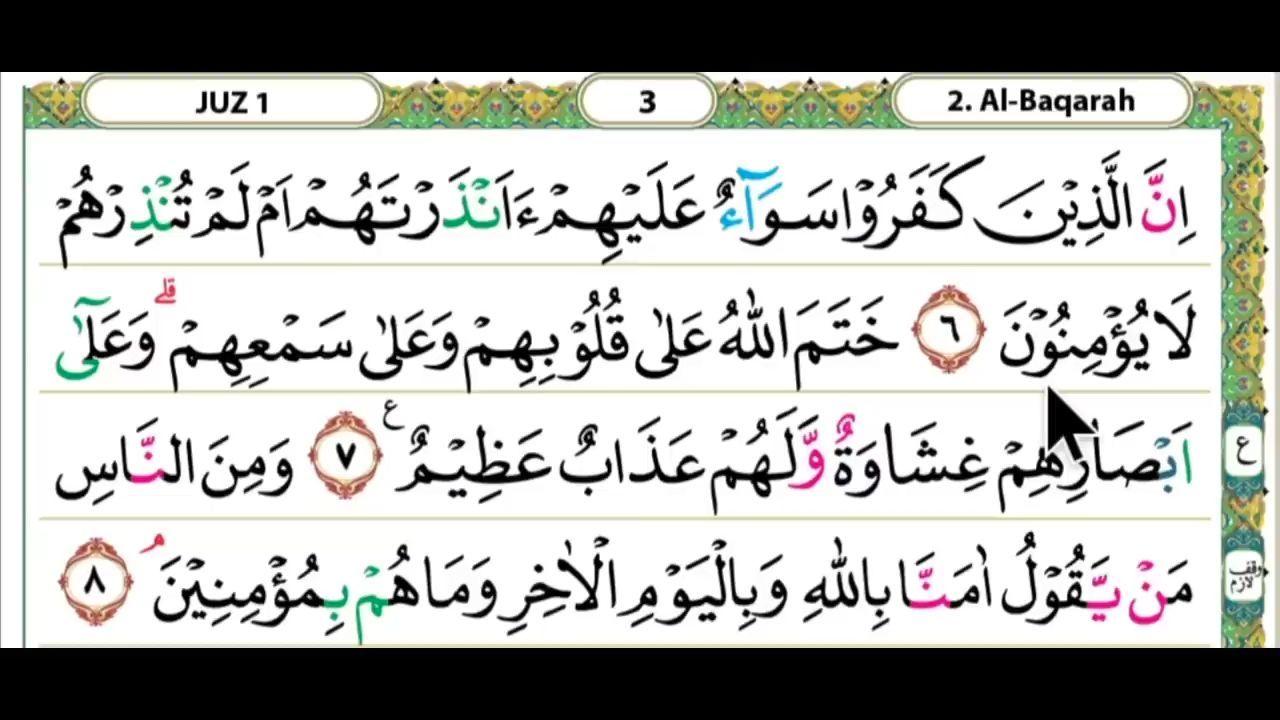 JUZ 1
3
2. Al-Baqarah
اِنَّ الَّذِيْنَ كَفَرُوْا سَوَآءٌ عَلَيْهِمْ ءَاَنْذَرْتَهُمْ اَمْ لَمْ تُنْذِرْهُمْ
لَا يُؤْمِنُوْنَ ٦ خَتَمَ اللّٰهُ عَلٰى قُلُوْبِهِمْ وَعَلٰى سَمْعِهِمْ ۗ وَعَلٰٓى
اَبْصَارِهِمْ غِشَاوَةٌ وَّلَهُمْ عَذَابٌ عَظِيْمٌ ع ٧ وَمِنَ النَّاسِ
ع
مَنْ يَّقُوْلُ اٰمَنَّا بِاللّٰهِ وَبِالْيَوْمِ الْاٰخِرِ وَمَا هُمْ بِمُؤْمِنِيْنَ ۘ ٨
وقف لازم